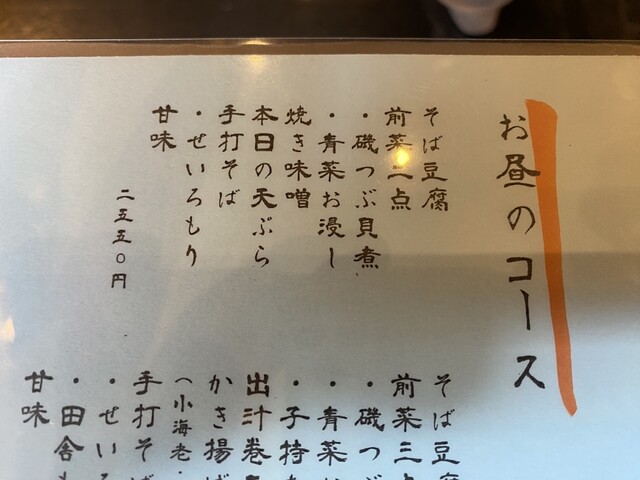 お昼のコース
そば豆腐
前菜二点
・磯つぶ貝煮
・青菜お浸し
焼き味噌
本日の天ぷら
手打そば
・せいろもり
甘味
二五五〇円
そば豆腐
前菜三点
・磯つぶ
・青菜お
・子持
出汁巻
かき揚げ
（小海老・
手打そば
・せいろ
・田舎も
甘味